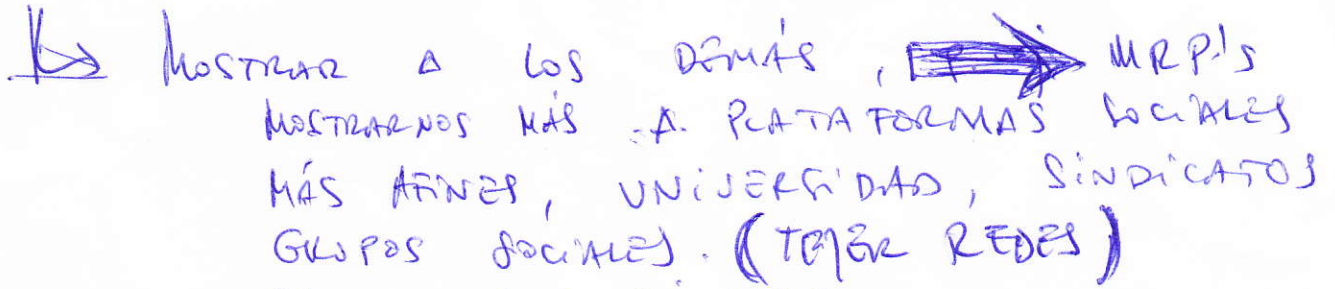 ↳ MOSTRAR A LOS DEMÁS, ➡ MRP'S
MOSTRARNOS MÁS A PLATAFORMAS SOCIALES
MÁS AFINES, UNIVERSIDAD, SINDICATOS
GRUPOS SOCIALES. (TEJER REDES)